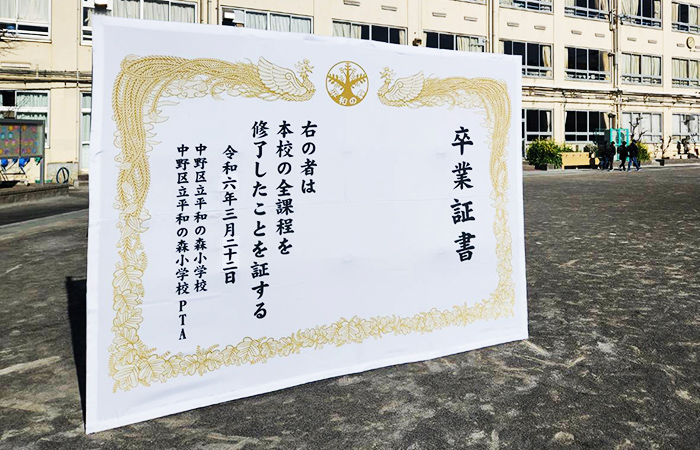 和の
卒業証書
右の者は
本校の全課程を
修了したことを証する
令和六年三月二十二日
中野区立平和の森小学校
中野区立平和の森小学校PTA